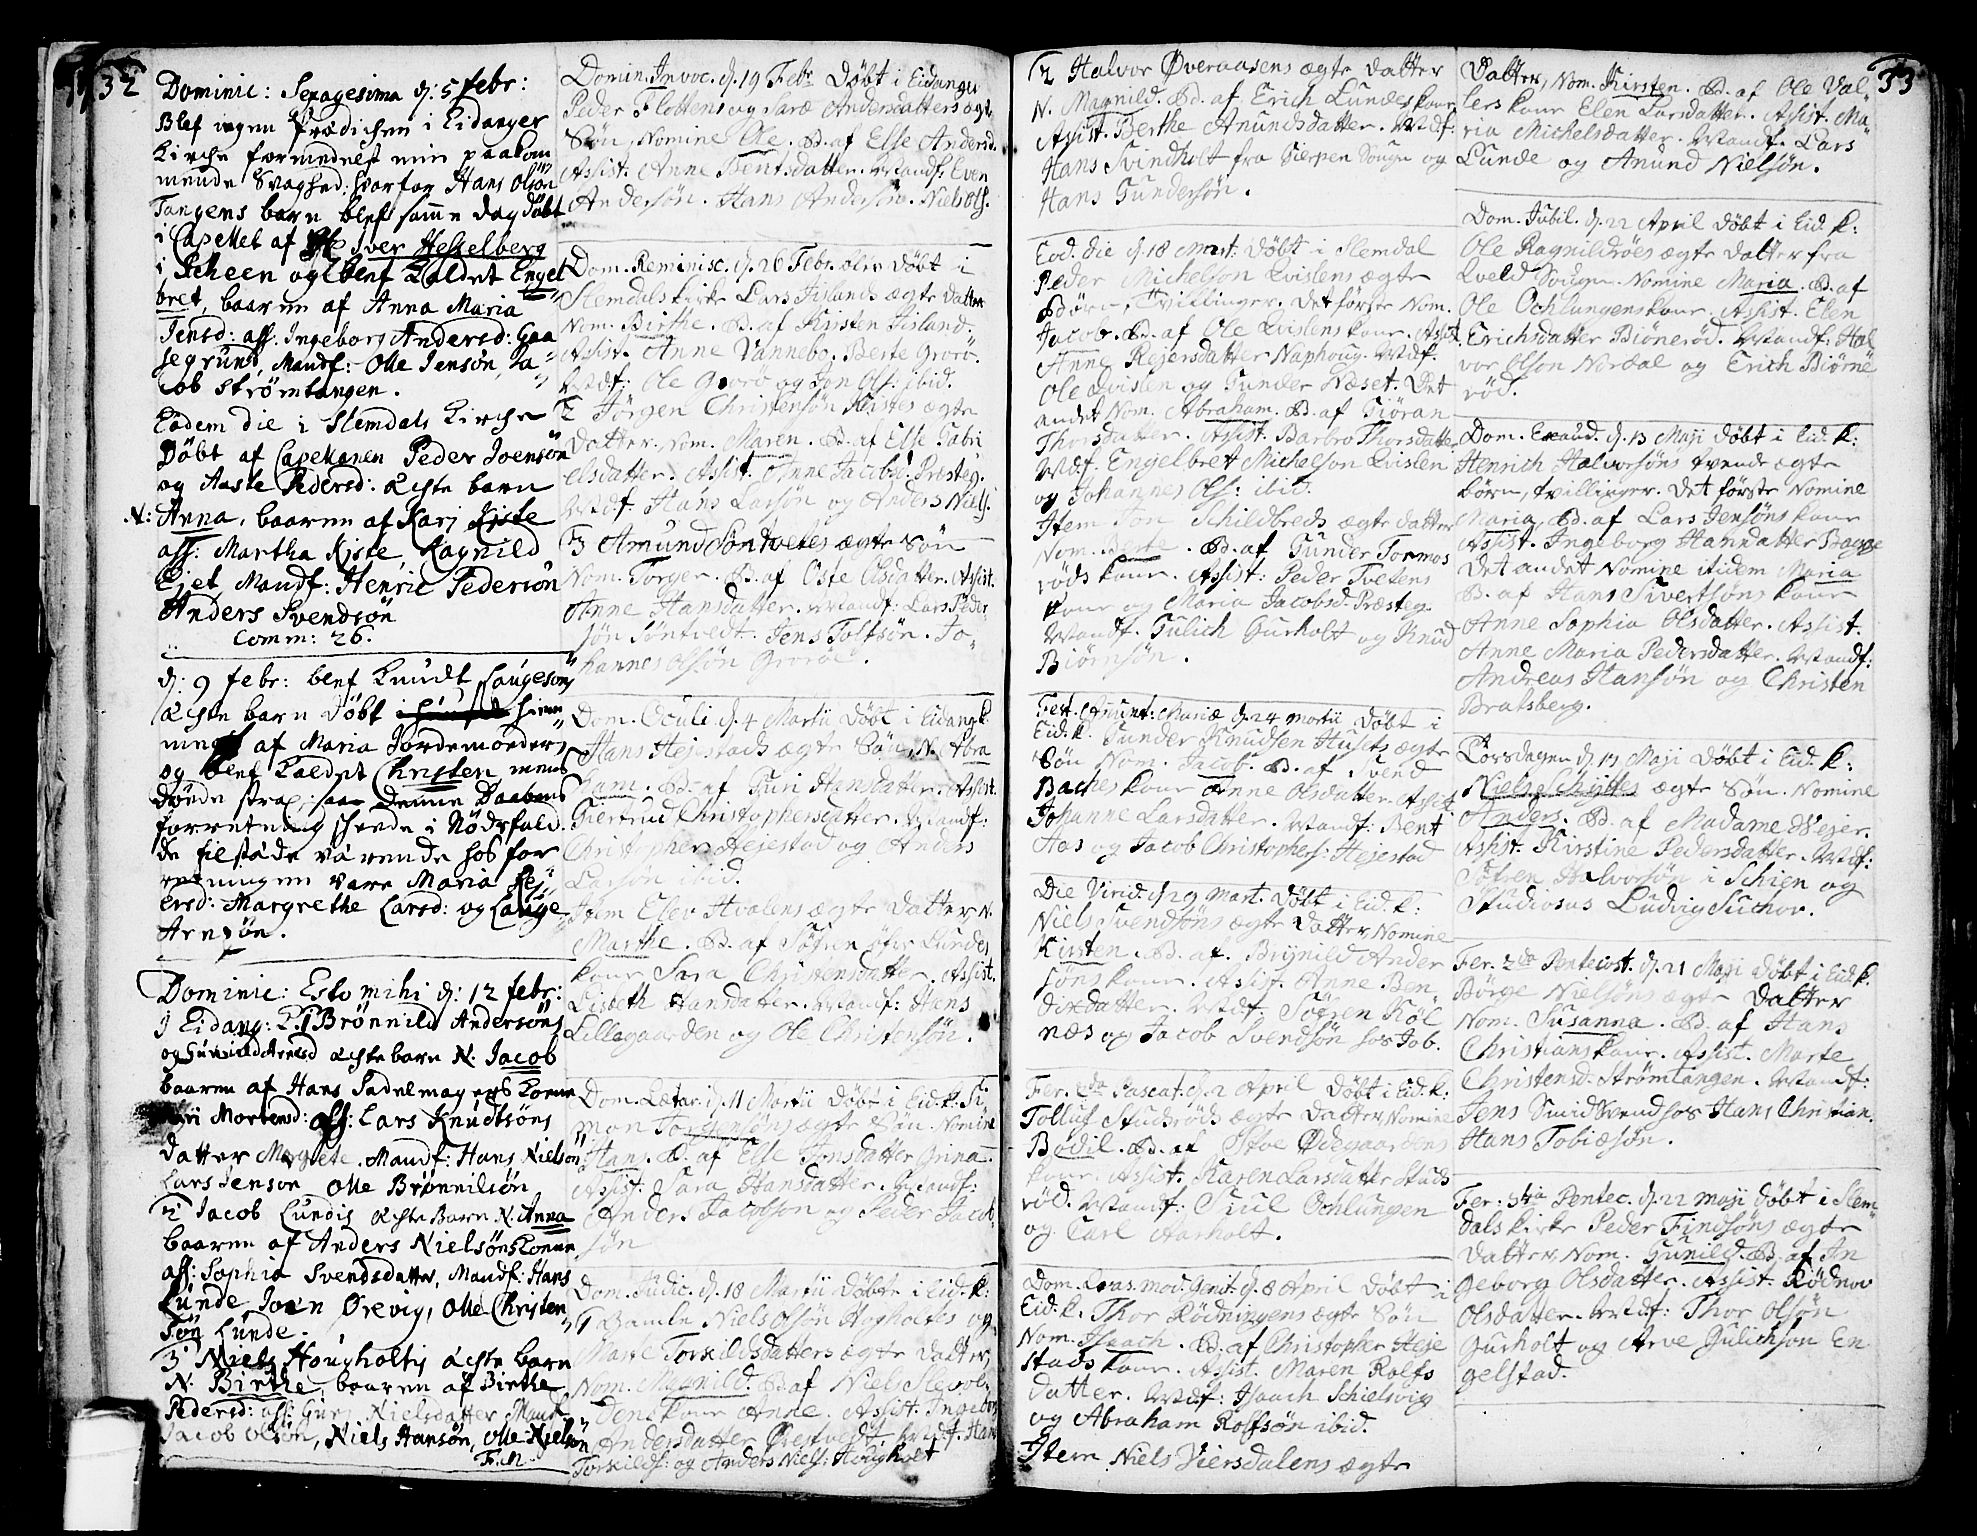 32
Dominic: Sexagesima d: 5 febr:
Blef ingen Prædichen i Eidanger
Kirche formedelst min paakom
mende Svaghed: hvorfor Hans Olsøn
Tangens barn blef samme dag døbt
i Capellet af Iver Hesselberg
i Scheen og blef kaldet Engel
bret, baaren af Anna Maria
Jensd: ass. Ingeborg Andersd: Gaa
segrund, Mandf: Olle Jensøn, Ja
cob Strømtangen.
Eodem die i Slemdals Kirche
Døbt af Capellanen Peder Joensøn
og Aaste Pedersd: Ächte barn
N: Anna, baaren af Karj Kiste
ass: Martha Kiste, Ragnild
Ejet, Mandf: Henric Pedersøn
Anders Svendsøn
Comm: 26.
d: 9 febr: blef Knudt Laugesøns
Ächte barn Døbt hiem
me af Maria Jordemoders
og blef kaldet Christen, mens
døde strax, Denne Daabens
forretning scheede i Nødsfald.
de tilstæde værende hos for
retningen vare Maria Rej
ersd: Margrethe Larsd: og Lauge
Arnsøn.
Dominic: Esto mihi d: 12 febr:
J Eidang: K. Brønnild Andersøns
og Gunild Arnesd Ächte barn N. Jacob
baaren af Hans Sadelmagers Konne
Mortensd: ass: Lars Knudtsøns
datter Margrete. Mandf: Hans Nielsøn
Lars Jensøn Olle Brønnilsøn
2 Jacob Lundis Ächte Barn N. Anna
baaren af Anders Nielsøns Konne,
ass: Sophia Svendsdatter, Mandf: Hans
Lunde, Joen Ørevig, Olle Christen
søn Lunde.
3 Niels Hougholtis Ächte barn
N. Birthe, baaren af Birthe
Pedersd: ass: Guri Nielsdatter Mandf:
Jacob Olsøn, Niels Hansøn, Olle Nielsøn
Domin. Invoc. d. 19 Febr. Døbt i Eidanger
Peder Flottens og Saræ Andersdatters ægte
Søn, Nomine Ole. B. af Else Andersd.
Assist. Anne Bentsdatter. Mandf. Even
Andersøn. Hans Andersøn. Niels Ols.
Dom. Reminisc. d. 26 Febr. blev Døbt i
Slemdals kirke Lars Fislands ægte datter
Nom. Birthe. B. af Kirsten Fisland.
Assist. Anne Vannebo. Berte Grorö.
Mdf: Ole Grorö og Jon Ols: ibid.
2 Jörgen Christensøn Kistes ægte
Datter, Nom. Maren. B. af Else Gabri
elsdatter. Assist. Anne Jacobsd. Præsteg.
Mdf. Hans Larsøn og Anders Niels.
3 Amund Søntvetes ægte Søn
Nom. Torger. B. af Oste Olsdatter. Assist.
Anne Hansdatter. Mandf: Lars Peder
søn Søntvedt. Jens Toltsøn. Jo
hannes Olsøn Groröe.
Dom. Oculi. d. 4 Martii Døbt i Eidang k.
Hans Hejestads ægte Søn, N. Abra
ham. B. af Guri Hansdatter. Assist.
Giertrud Christophersdatter. Mandf:
Christopher Hejestad og Anders
Larsøn ibid.
Item Elev Hvalens ægte datter N.
Marthe. B. af Søfren øfre Lundes
kone Sara Christensdatter. Assist.
Lisbeth Hansdatter. Mandf: Hans
Lillegaarden og Ole Christensøn.
Dom. Lætar. d. 11 Martii Døbt i Eid. k. Si
mon Torgensøns ægte Søn. Nomine
Hans. B. af Else Jonsdatter Grina.
Assist. Sara Hansdatter. Mandf:
Anders Jacobsøn og Peder Jacob
søn
Dom. Judic. d. 18 Martii Døbte i Eid. k:
1 Gamle Niels Olsøn Hogholtes og
Marte Torkildsdatters ægte datter,
Nom. Magnild. B. af Niels
dens kone Anne. Assist. Ingebor
Andersdatter Ørstvedt, Mdf. Hans
Torkilds: og Anders Niels: Hougholt
2 Halvor Øveraasens ægte datter
N. Magnild. B. af Erich Lundes kone
Assist. Berthe Anundsdatter. Mdf:
Hans Svindholt fra Sierpen Sougn og
Hans Gundersøn.
Eod. die d. 18 Mart: Døbt i Slemdal
Peder Michelsøn Qvislens ægte
Børn, Tvillinger. Det første Nom.
Jacob. B. af Ole Qvislens kone. Assist.
Anne Rejersdatter Naphoug. Mdf.
Ole Qvislen og Gunder Næset. Det
andet Nom. Abraham. B. af Giöran
Thorsdatter. Assist. Barbro Thorsdatter
Mdf. Engelbret Michelsøn Qvislen
og Johannes Ols: ibid.
Item Jon Schildbreds ægte datter
Nom. Berte. B. af Gunder Tormos
röds kone. Assist: Peder Tvetens
kone og Maria Jacobsd. Præsteg.
Mandf. Gulich Gurholt og Knud
Biørnsøn.
Fest. Anunt: Mariæ d. 24 Martii Døbt i
Eid. k. Gunder Knudsen Husets ægte
Søn Nom. Jacob. B. af Svend
Baches kone Anne Olsdatter. Assist.
Johanne Larsdatter. Mandf: Bent
Aas og Jacob Christophers: Hejestad
Die Virid. d. 29 Mart. Døbt i Eid. k:
Niels Svendsøns ægte Datter, Nomine
Kirsten. B. af Brynild Ander
søns kone. Assist. Anne Ben
dixdatter. Mdf. Søfren Köl
næs og Jacob Svendsøn hos Job.
Fer. 2da Pascat. d. 2 April Døbt i Eid. k:
Tolluf Studsröds ægte datter, Nomine
Bodil. B. af Stoe Ødegaardens
kone. Assist. Karen Larsdatter Studs
röd. Mandf: Skiul Ochlungen
og Carl Aarholt.
Dom. Quas. mod. Genit. d. 8 April Døbt i
Eid. k. Thor Rödningens ægte Søn
Nom. Isaach. B. af Christopher Heje
stads kone. Assist. Maren Rolfs
datter. Mdf: Isaach Schielsvig
og Abraham Rolfsøn ibid.
Item Niels Viersdalens ægte
33
Datter, Nom. Kirsten. B. af Ole Val
lers kone Elen Larsdatter. Assist. Ma
ria Michelsdatter. Mandf. Lars
Lunde og Anund Nielsøn.
Dom. Jubil. d. 22 April Døbt i Eid. k:
Ole Ragnildröes ægte datter fra
Qveld Sougn. Nomine Maria. B. af
Ole Ochlungens kone. Assist. Elen
Erichsdatter Biönerød. Mandf: Hal
vor Olsøn Nordal og Erich Biörne
röd.
Dom. Exaud. d. 13 Maji Døbt i Eid. k:
Henrich Halvorsøns tvende ægte
børn, tvillinger. Det første Nomine
Maria, B. af Lars Jensøns kone
Assist. Ingeborg Hansdatter Bauge
Det andet Nomine itidem Maria
B. af Hans Sivertsøns kone
Anne Sophia Olsdatter. Assist.
Anne Maria Pedersdatter. Mandf:
Andreas Hansøn og Christen
Bratsberg.
Torsdagen d. 17 Maji Døbt i Eid. k:
Nielse Schyttes ægte Søn. Nomine
Anders. B. af Madame Wejer.
Assist. Kirstine Pedersdatter. Mdf:
Søfren Halvorsøn i Schien og
Studiosus Ludvig Suchov.
Fer. 2da Pentecost. d. 21 Maji Døbt i Eid. k.
Børge Nielsøns ægte Datter
Nom. Susanna. B. af Hans
Christians kone. Assist. Marte
Christensd. Strømtangen. Mandf:
Jens Smid Svend hos Hans Christian.
Hans Tobiæsøn.
Fer: 3tia Pentec. d. 22 Maji Døbt i Slem
dals kirke Peder Findsøns ægte
Datter, Nom. Gunild. B. af In
geborg Olsdatter. Assist. Rødnov
Olsdatter. Mdf: Thor Olsøn
Gurholt og Arve Gulichsøn En
gelstad.